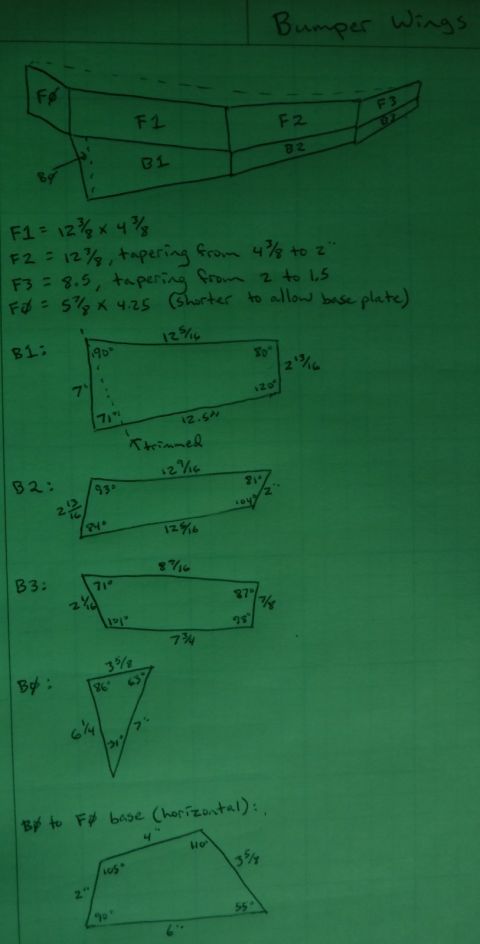 Bumper Wings
FØ
F1
F2
F3
B1
B2
B3
BØ
F1 = 12 3/8 x 4 3/8
F2 = 12 3/8, tapering from 4 3/8 to 2"
F3 = 8.5, tapering from 2 to 1.5
FØ = 5 7/8 x 4.25 (shorter to allow base plate)
B1:
12 5/16
90°
80°
2 13/16
7"
120°
71°
12.5"
trimmed
B2:
12 9/16
93°
81°
2 13/16
2"
104°
84°
12 5/16
B3:
8 9/16
71°
87°
2 1/16
7/8
101°
98°
7 3/4
BØ:
3 5/8
86°
63°
6 1/4
7"
31°
BØ to FØ base (horizontal):
4"
110°
105°
3 5/8
2"
90°
55°
6"